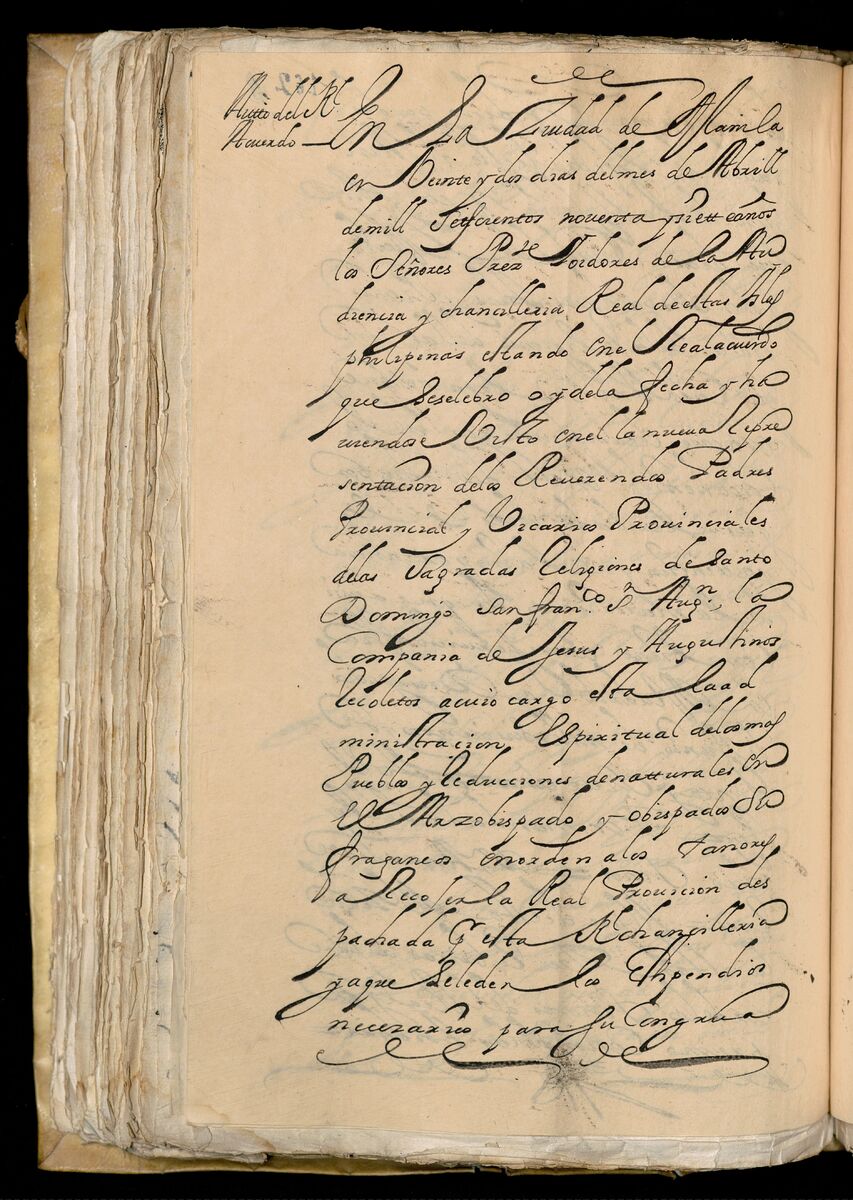 Autto del Rl
Acuerdo
En La Ziudad de Manila
en Veinte y dos dias del mes de Abrill
de mill Seiscientos noventa y siette años
los Señores Prezte Y oidores de la Au
diencia y chancilleria Real de estas Yslas
philipinas estando en el Real acuerdo
que Seselebro oy dela fecha y ha
uiendose Visto en el la nueva Repre
sentacion delos Reverendos Padres
Provincial y Vicarios Provinciales
delas Sagradas Religiones de Santo
Domingo san franco Sn Augn, la
Compania de Jesus y Augustinos
Recoletos a cuio cargo esta la ad
ministracion Espiritual delos mas
Pueblos y Reducciones de natturales en
el Arzobispado y obispados Su
fraganeos en orden a los Tanores
a Recojer la Real Provicion des
pachada pr esta Rl chancilleria
y a que Seleden los Estipendios
necezarios para su Congrua